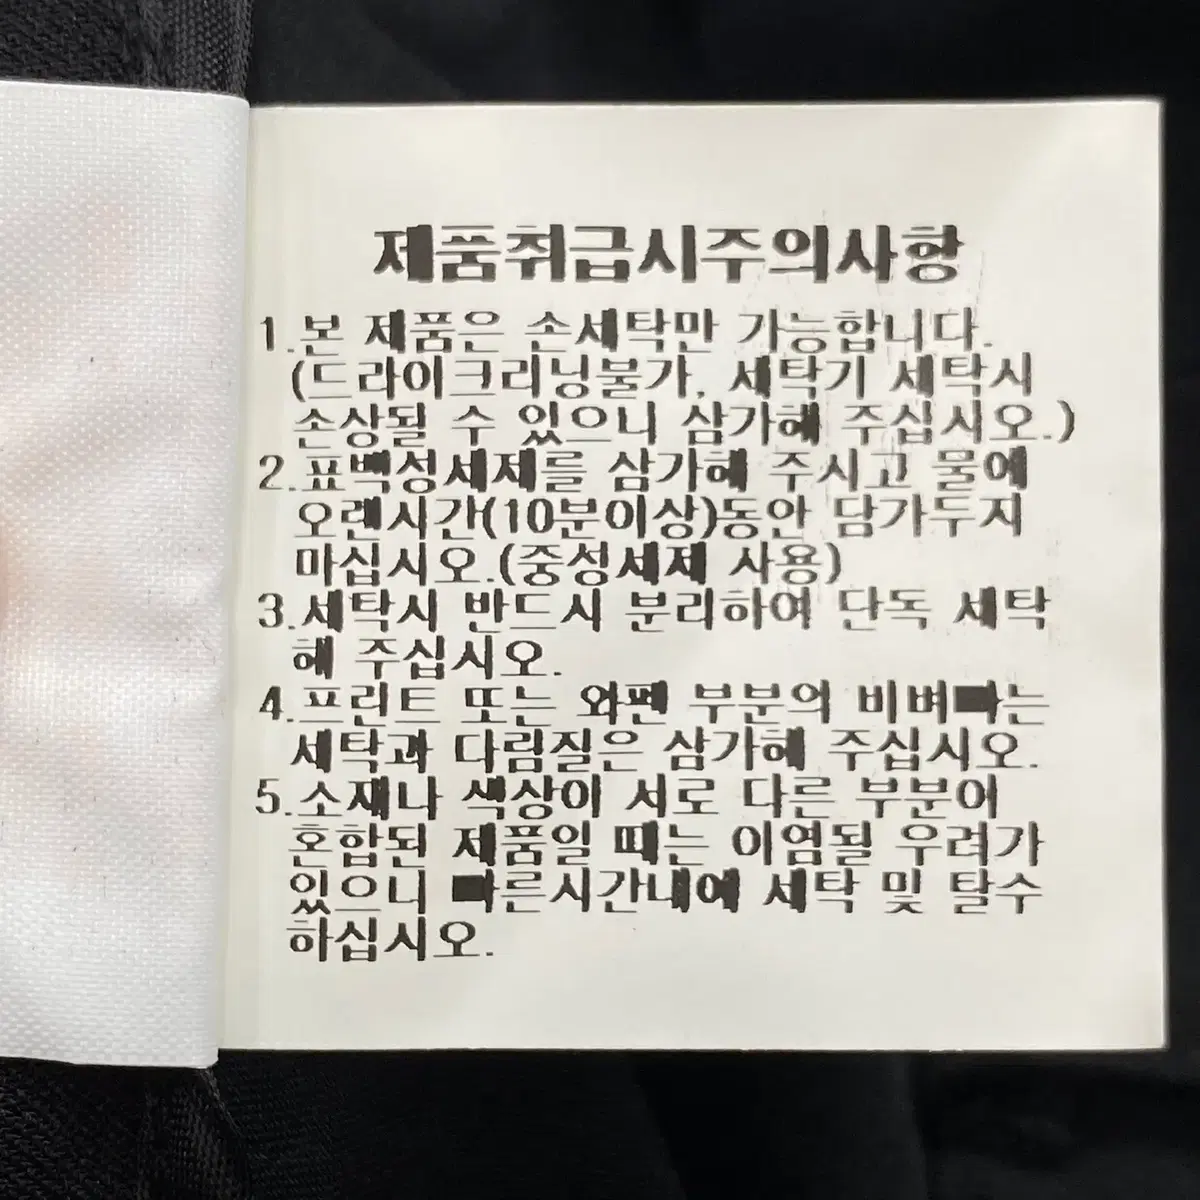 제품취급시주의사항
1.본 제품은 손세탁만 가능합니다.
(드라이크리닝불가, 세탁기 세탁시
손상될 수 있으니 삼가해 주십시오.)
2.표백성세제를 삼가해 주시고 물에
오랜시간(10분이상)동안 담가두지
마십시오.(중성세제 사용)
3.세탁시 반드시 분리하여 단독 세탁
해 주십시오.
4.프린트 또는 와펜 부분의 비벼빠는
세탁과 다림질은 삼가해 주십시오.
5.소재나 색상이 서로 다른 부분이
혼합된 제품일 때는 이염될 우려가
있으니 빠른시간내에 세탁 및 탈수
하십시오.